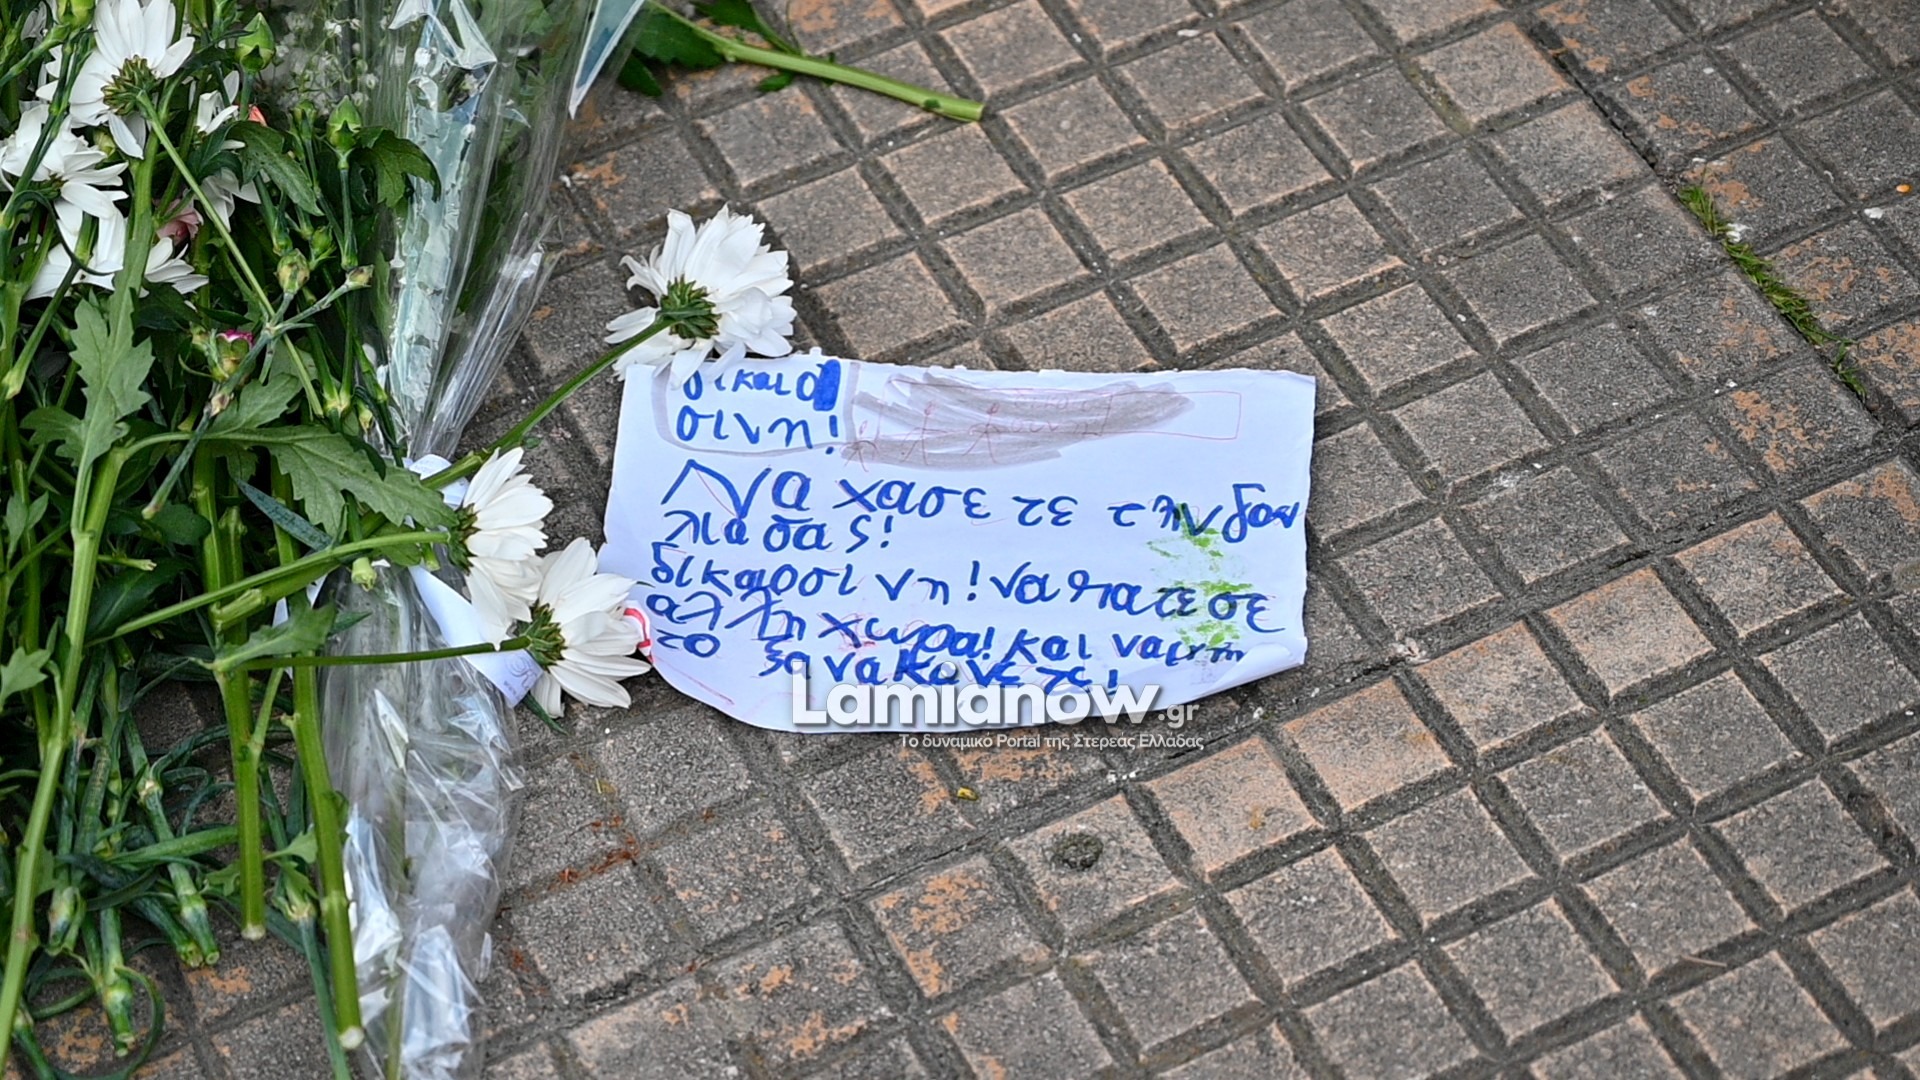 δικαιο
σινη!
Να χασετε την δου
λιασας!
δικαοσινη! να πατε σε
αλλη χωρα! και να μην
το ξανακανετε!
Lamianow.gr
Το δυναμικό Portal της Στερεάς Ελλάδας